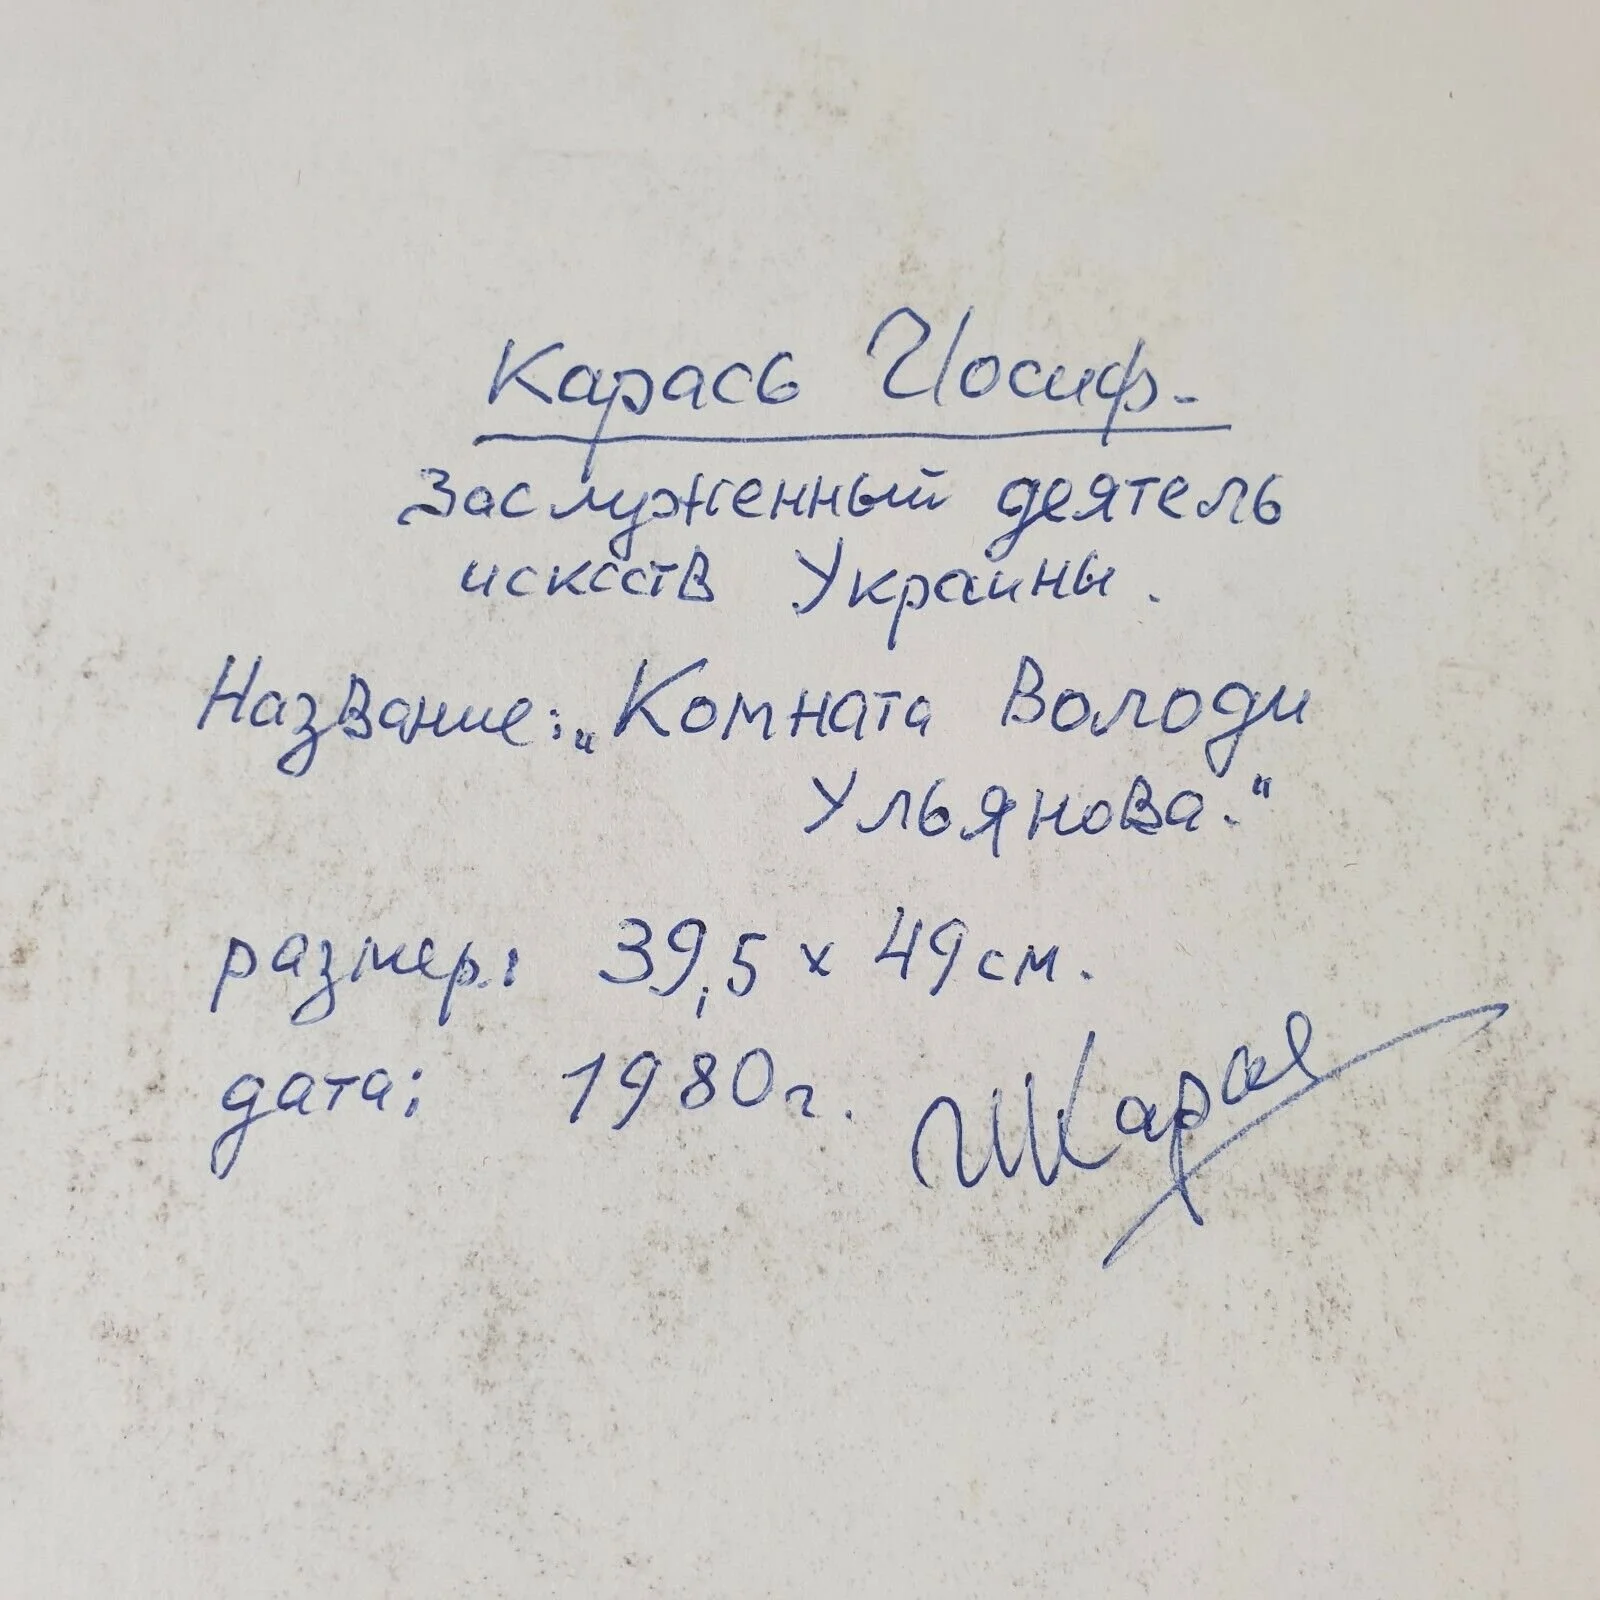 Карась Иосиф.-
Заслуженный деятель
исксств Украины.
Название: „Комната Володи
Ульянова."
размер.: 39,5 x 49 см.
дата: 1980 г. ИКарас